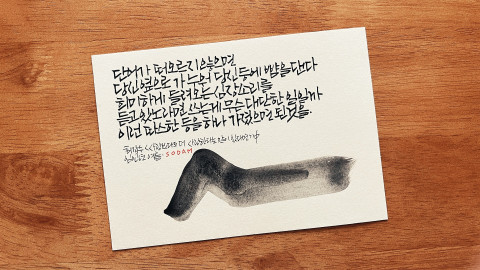 단어가 떠오르지 않으면
당신 옆으로 가 누워 당신 등에 뺨을 댄다
희미하게 들려오는 심장소리를
듣고 있노라면 쓰는게 무슨 대단한 일일까
이런 따스한 등을 하나 가졌으면 된것을.
SODAM